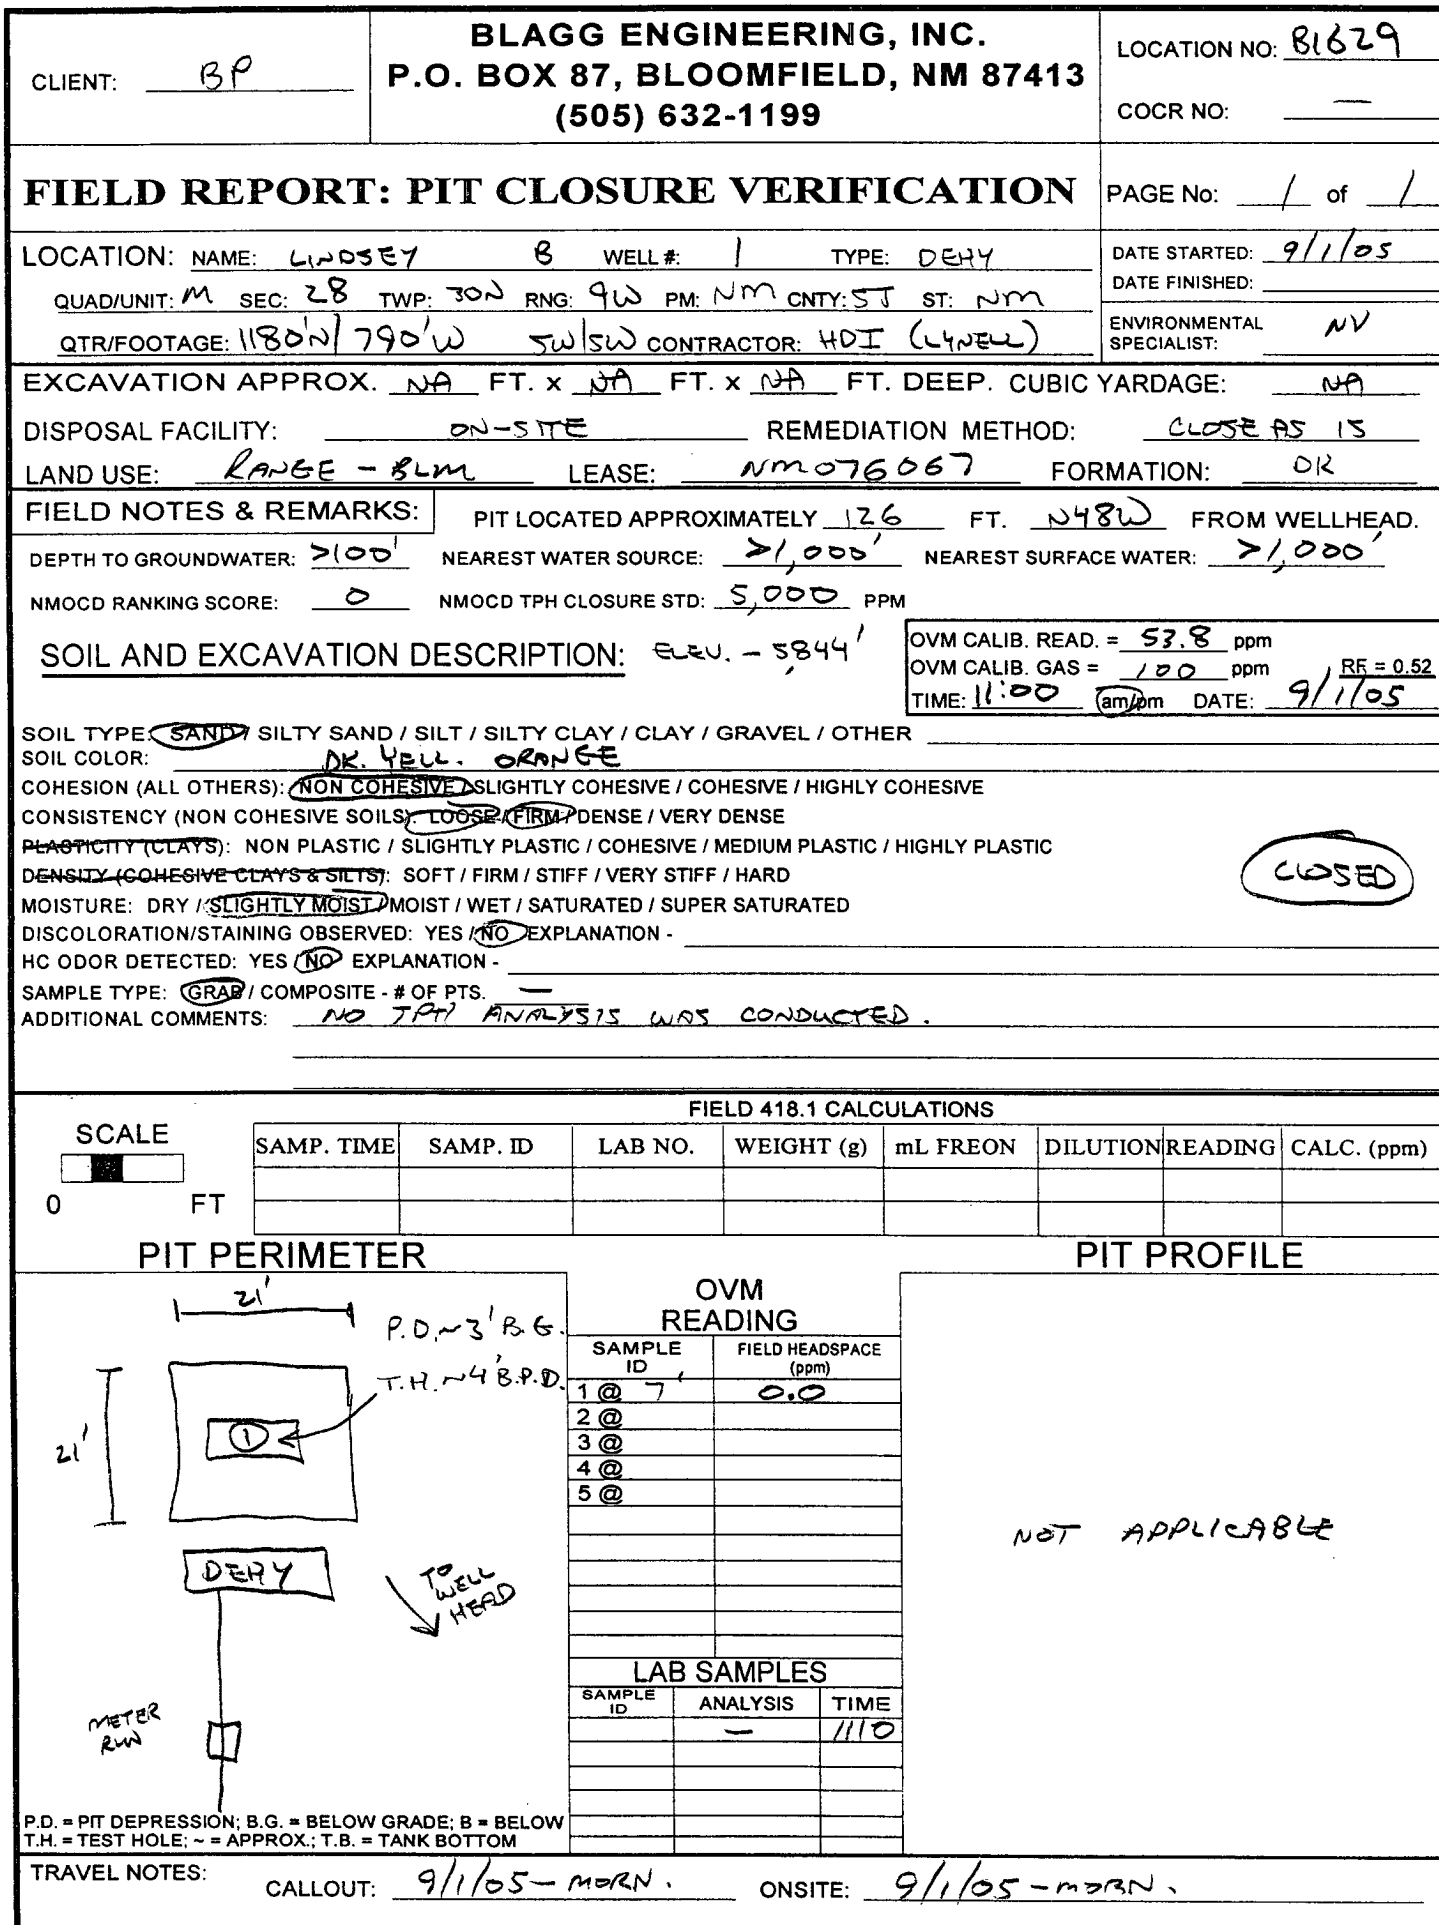 CLIENT: BP
BLAGG ENGINEERING, INC.
P.O. BOX 87, BLOOMFIELD, NM 87413
(505) 632-1199
LOCATION NO: B1629
COCR NO: —
FIELD REPORT: PIT CLOSURE VERIFICATION
PAGE No: 1 of 1
LOCATION: NAME: LINDSEY B WELL #: 1 TYPE: DEHY
QUAD/UNIT: M SEC: 28 TWP: 30N RNG: 9W PM: NM CNTY: SJ ST: NM
QTR/FOOTAGE: 1180'N/790'W SW/SW CONTRACTOR: HDI (LYNELL)
DATE STARTED: 9/1/05
DATE FINISHED:
ENVIRONMENTAL SPECIALIST: NV
EXCAVATION APPROX. NA FT. x NA FT. x NA FT. DEEP. CUBIC YARDAGE: NA
DISPOSAL FACILITY: ON-SITE REMEDIATION METHOD: CLOSE AS IS
LAND USE: RANGE - BLM LEASE: NM076067 FORMATION: DK
FIELD NOTES & REMARKS: PIT LOCATED APPROXIMATELY 126 FT. N48W FROM WELLHEAD.
DEPTH TO GROUNDWATER: >100' NEAREST WATER SOURCE: >1,000' NEAREST SURFACE WATER: >1,000'
NMOCD RANKING SCORE: 0 NMOCD TPH CLOSURE STD: 5,000 PPM
SOIL AND EXCAVATION DESCRIPTION: ELEV. - 5,844'
OVM CALIB. READ. = 53.8 ppm
OVM CALIB. GAS = 100 ppm RF = 0.52
TIME: 11:00 am/pm DATE: 9/1/05
SOIL TYPE: SAND / SILTY SAND / SILT / SILTY CLAY / CLAY / GRAVEL / OTHER
SOIL COLOR: DK. YELL. ORANGE
COHESION (ALL OTHERS): NON COHESIVE / SLIGHTLY COHESIVE / COHESIVE / HIGHLY COHESIVE
CONSISTENCY (NON COHESIVE SOILS): LOOSE / FIRM / DENSE / VERY DENSE
PLASTICITY (CLAYS): NON PLASTIC / SLIGHTLY PLASTIC / COHESIVE / MEDIUM PLASTIC / HIGHLY PLASTIC
DENSITY (COHESIVE CLAYS & SILTS): SOFT / FIRM / STIFF / VERY STIFF / HARD
CLOSED
MOISTURE: DRY / SLIGHTLY MOIST / MOIST / WET / SATURATED / SUPER SATURATED
DISCOLORATION/STAINING OBSERVED: YES / NO EXPLANATION -
HC ODOR DETECTED: YES / NO EXPLANATION -
SAMPLE TYPE: GRAB / COMPOSITE - # OF PTS. —
ADDITIONAL COMMENTS: NO TPH ANALYSIS WAS CONDUCTED.
FIELD 418.1 CALCULATIONS
SCALE
0 FT
SAMP. TIME SAMP. ID LAB NO. WEIGHT (g) mL FREON DILUTION READING CALC. (ppm)
PIT PERIMETER
21'
P.D. ~3' B.G.
T.H. ~4' B.P.D.
21'
1
DEHY
TO WELL HEAD
METER RUN
P.D. = PIT DEPRESSION; B.G. = BELOW GRADE; B = BELOW
T.H. = TEST HOLE; ~ = APPROX.; T.B. = TANK BOTTOM
OVM READING
SAMPLE ID FIELD HEADSPACE (ppm)
1 @ 7' 0.0
2 @
3 @
4 @
5 @
LAB SAMPLES
SAMPLE ID ANALYSIS TIME
— 1110
PIT PROFILE
NOT APPLICABLE
TRAVEL NOTES: CALLOUT: 9/1/05 - MORN. ONSITE: 9/1/05 - MORN.